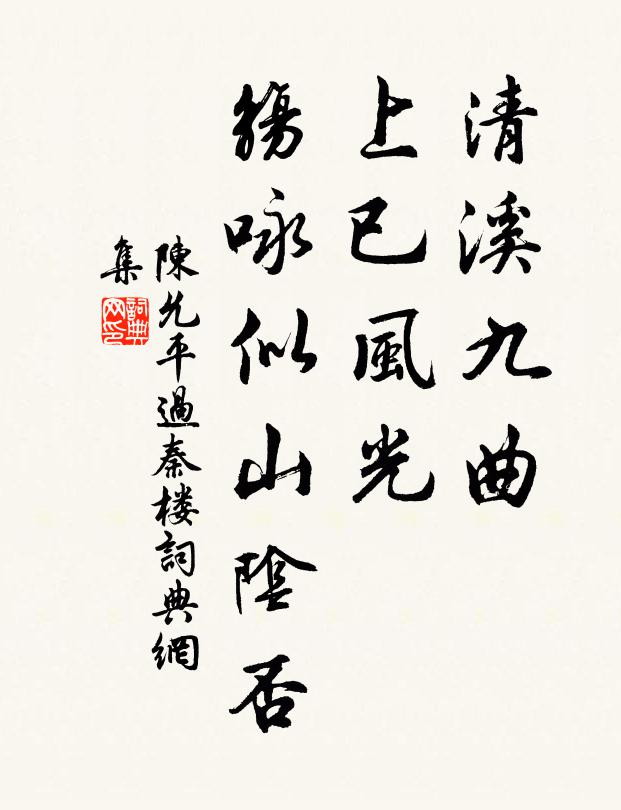 清溪九曲
上巳風光
觴咏似山陰否
陳允平過秦楼詞典網
集
詞典網印